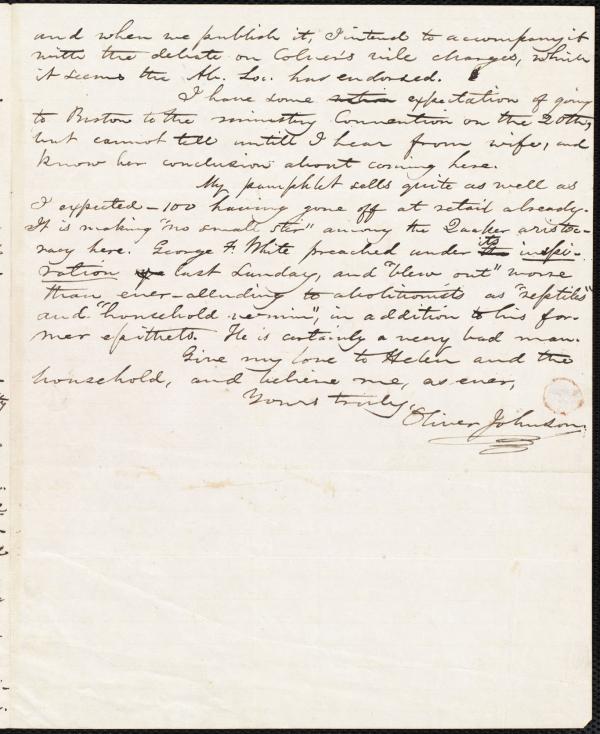 and when we publish it, I intend to accompany it
with the debate on Colver's vile charges, which
it seems the Ab. Soc. has endorsed.
I have some expectation of going
to Boston to the ministry Convention on the 20th,
but cannot tell untill I hear from wife, and
know her conclusion about coming here.
My pamphlet sells quite as well as
I expected—100 having gone off at retail already.
It is making "no small stir" among the Quaker aristoc-
racy here. George F. White preached under its inspi-
ration last Sunday, and "blew out" worse
than ever—alluding to abolitionists as "reptiles"
and "household vermin", in addition to his for-
mer epithets. He is certainly a very bad man.
Give my love to Helen and the
household, and believe me, as ever,
Yours truly,
Oliver Johnson.